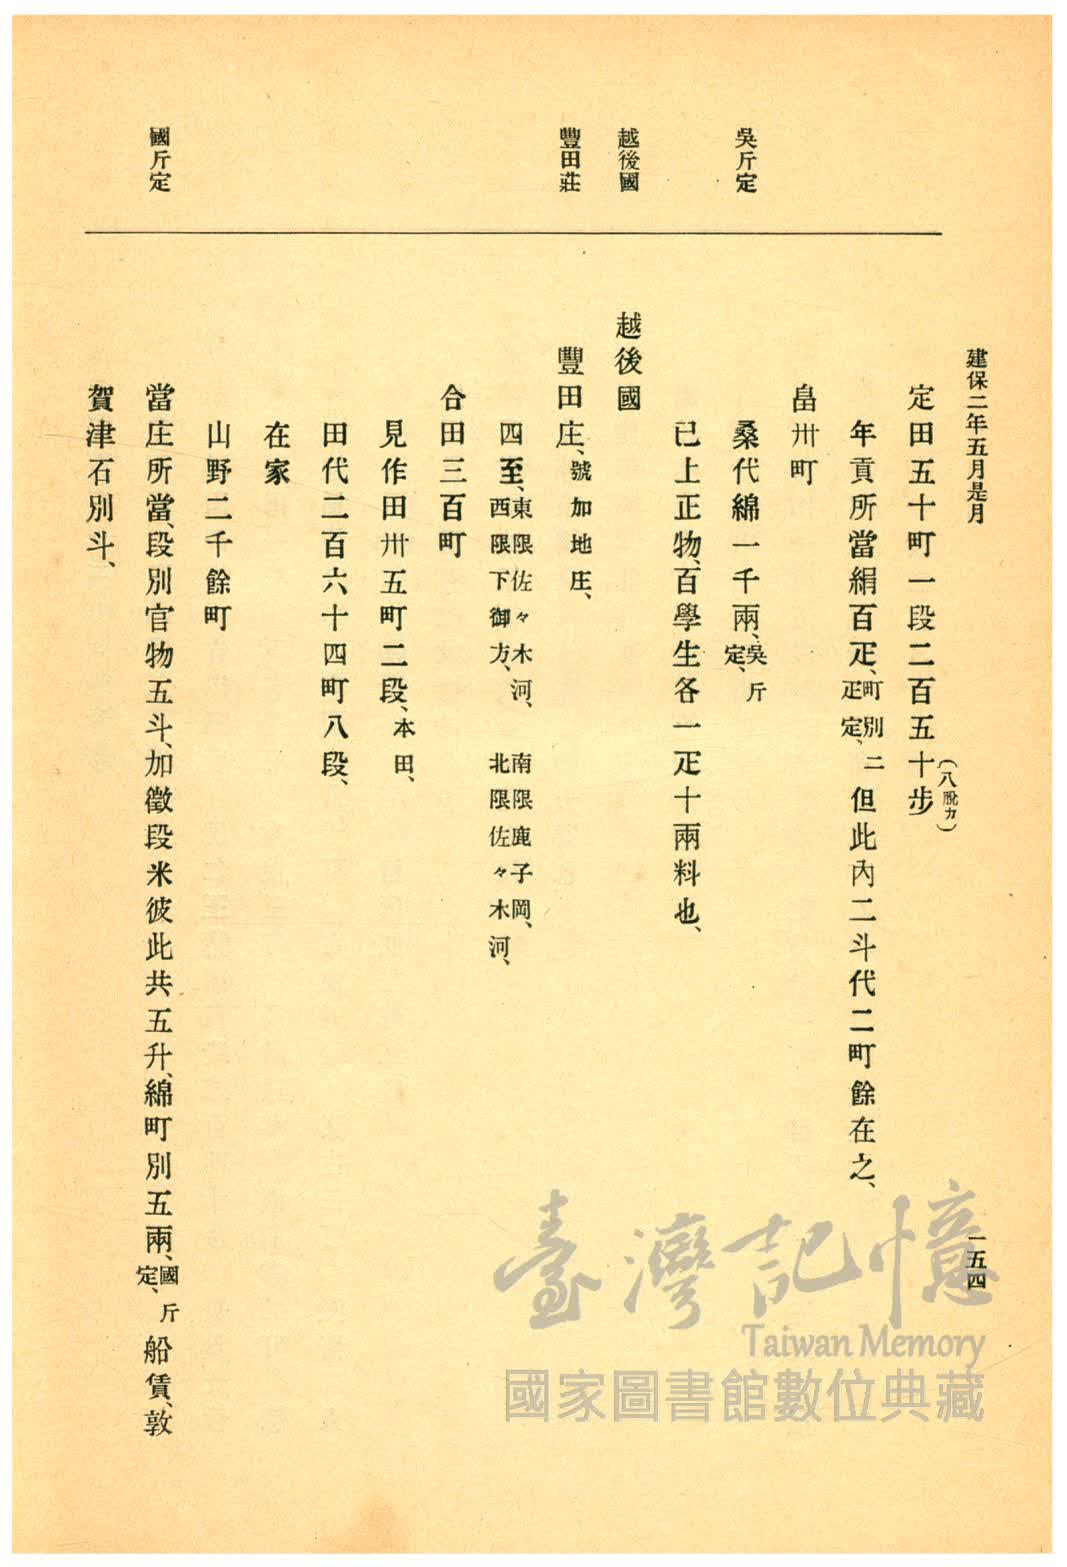 建保二年五月是月
一五四
吳斤定
越後國
豐田莊
國斤定
定田五十町一段二百五十步
(八脫カ)
年貢所當絹百疋、町別二疋定、但此內二斗代二町餘在之、
畠卅町
桑代綿一千兩、吳斤定、
已上正物、百學生各一疋十兩料也、
越後國
豐田庄、號加地庄、
四至、東限佐々木河、南限鹿子岡、
西限下御方、北限佐々木河、
合田三百町
見作田卅五町二段、本田、
田代二百六十四町八段、
在家
山野二千餘町
當庄所當、段別官物五斗、加徵段米彼此共、五升、綿町別五兩、國斤定、船賃、敦
賀津石別斗、
臺灣記憶
Taiwan Memory
國家圖書館數位典藏